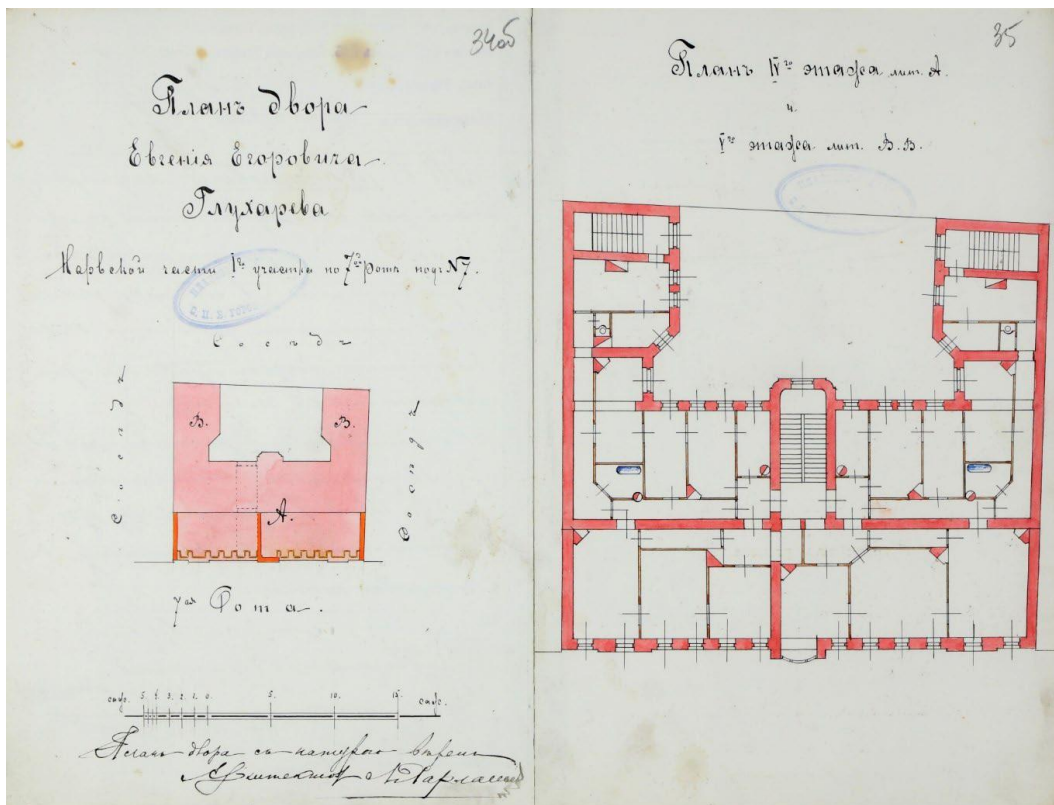 34об
Планъ двора
Евгенія Егоровича
Глухарева
Нарвской части Iго участка по 7й ротѣ подъ №7.
Сосѣдъ
Сосѣдъ
Сосѣдъ
В.
В.
А.
7ая Рота.
саж. 5. 4. 3. 2. 1. 0. 5. 10. 15. саж.
Планъ двора съ натурою вѣренъ
Архитекторъ
35
Планъ IVго этажа лит. А.
и
Vго этажа лит. В.В.